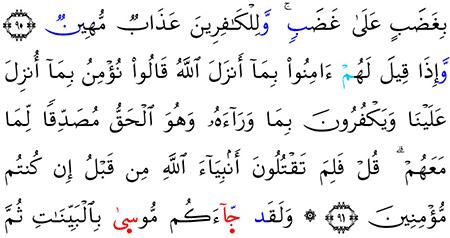 بِغَضَبٍ عَلَىٰ غَضَبٖۚ وَّلِلۡكَٰفِرِينَ عَذَابٞ مُّهِينٞ ٩٠
وَّإِذَا قِيلَ لَهُمۡ ءَامِنُواْ بِمَآ أَنزَلَ ٱللَّهُ قَالُواْ نُؤۡمِنُ بِمَآ أُنزِلَ
عَلَيۡنَا وَيَكۡفُرُونَ بِمَا وَرَآءَهُۥ وَهُوَ ٱلۡحَقُّ مُصَدِّقٗا لِّمَا
مَعَهُمۡۗ قُلۡ فَلِمَ تَقۡتُلُونَ أَنۢبِيَآءَ ٱللَّهِ مِن قَبۡلُ إِن كُنتُم
مُّؤۡمِنِينَ ٩١ ۞ وَلَقَد جَّآءَكُم مُّوسىٰ بِٱلۡبَيِّنَٰتِ ثُمَّ